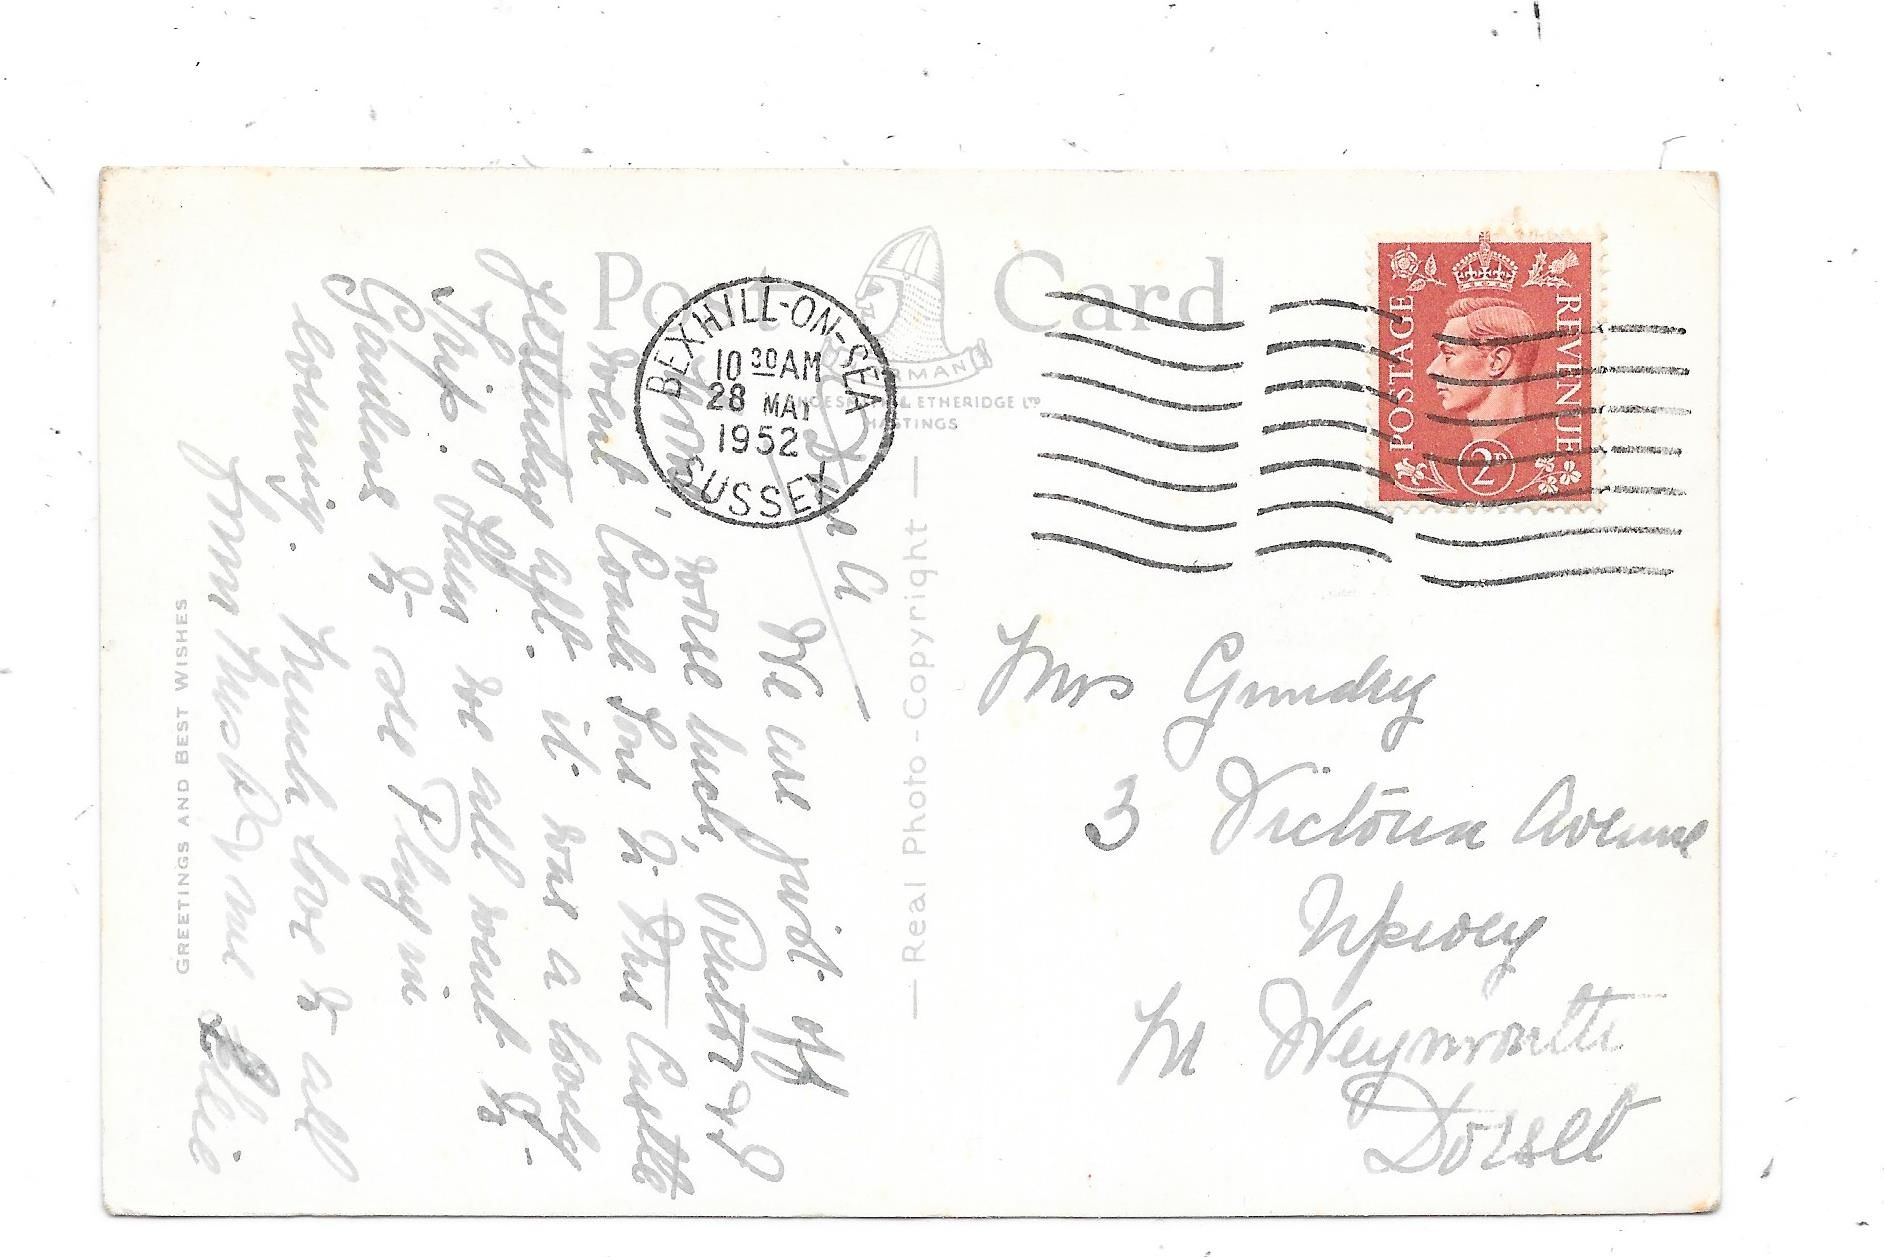 Post Card
NORMAN
SHOESMITH & ETHERIDGE LTD
HASTINGS
BEXHILL-ON-SEA
10 30 AM
28 MAY
1952
SUSSEX
POSTAGE
REVENUE
2D
— Real Photo-Copyright —
GREETINGS AND BEST WISHES
Mrs Grundey
3 Victoria Avenue
Upwey
Nr Weymouth
Dorset
We are just off
some luck, &
went Coach to This Castle
yesterday aft. it was a lovely
Trip. Then we all went to
Gardens to see Play in
evening. Much love to all
from
Elsie